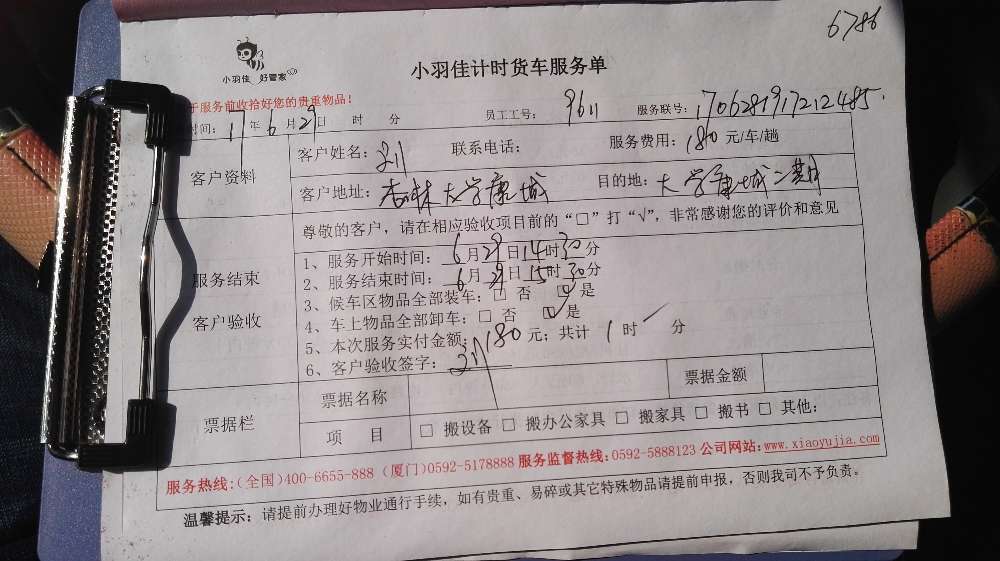 6786
小羽佳 好管家
小羽佳计时货车服务单
于服务前收拾好您的贵重物品!
时间: 17 年 6 月 29 日 时 分 员工工号: 9611 服务联号: 1706281917212485
客户资料
客户姓名: 联系电话: 服务费用: 180 元/车/趟
客户地址: 杏林大学康城 目的地: 大学康城二期
尊敬的客户,请在相应验收项目前的“□”打“√”,非常感谢您的评价和意见
服务结束
客户验收
1、服务开始时间: 6 月 29 日 14 时 30 分
2、服务结束时间: 6 月 29 日 15 时 30 分
3、候车区物品全部装车: □ 否 ☑ 是
4、车上物品全部卸车: □ 否 ☑ 是
5、本次服务实付金额: 180 元; 共计 1 时 / 分
6、客户验收签字:
票据栏
票据名称 票据金额
项 目 □ 搬设备 □ 搬办公家具 □ 搬家具 □ 搬书 □ 其他:
服务热线:(全国)400-6655-888 (厦门)0592-5178888 服务监督热线:0592-5888123 公司网站:www.xiaoyujia.com
温馨提示: 请提前办理好物业通行手续,如有贵重、易碎或其它特殊物品请提前申报,否则我司不予负责。